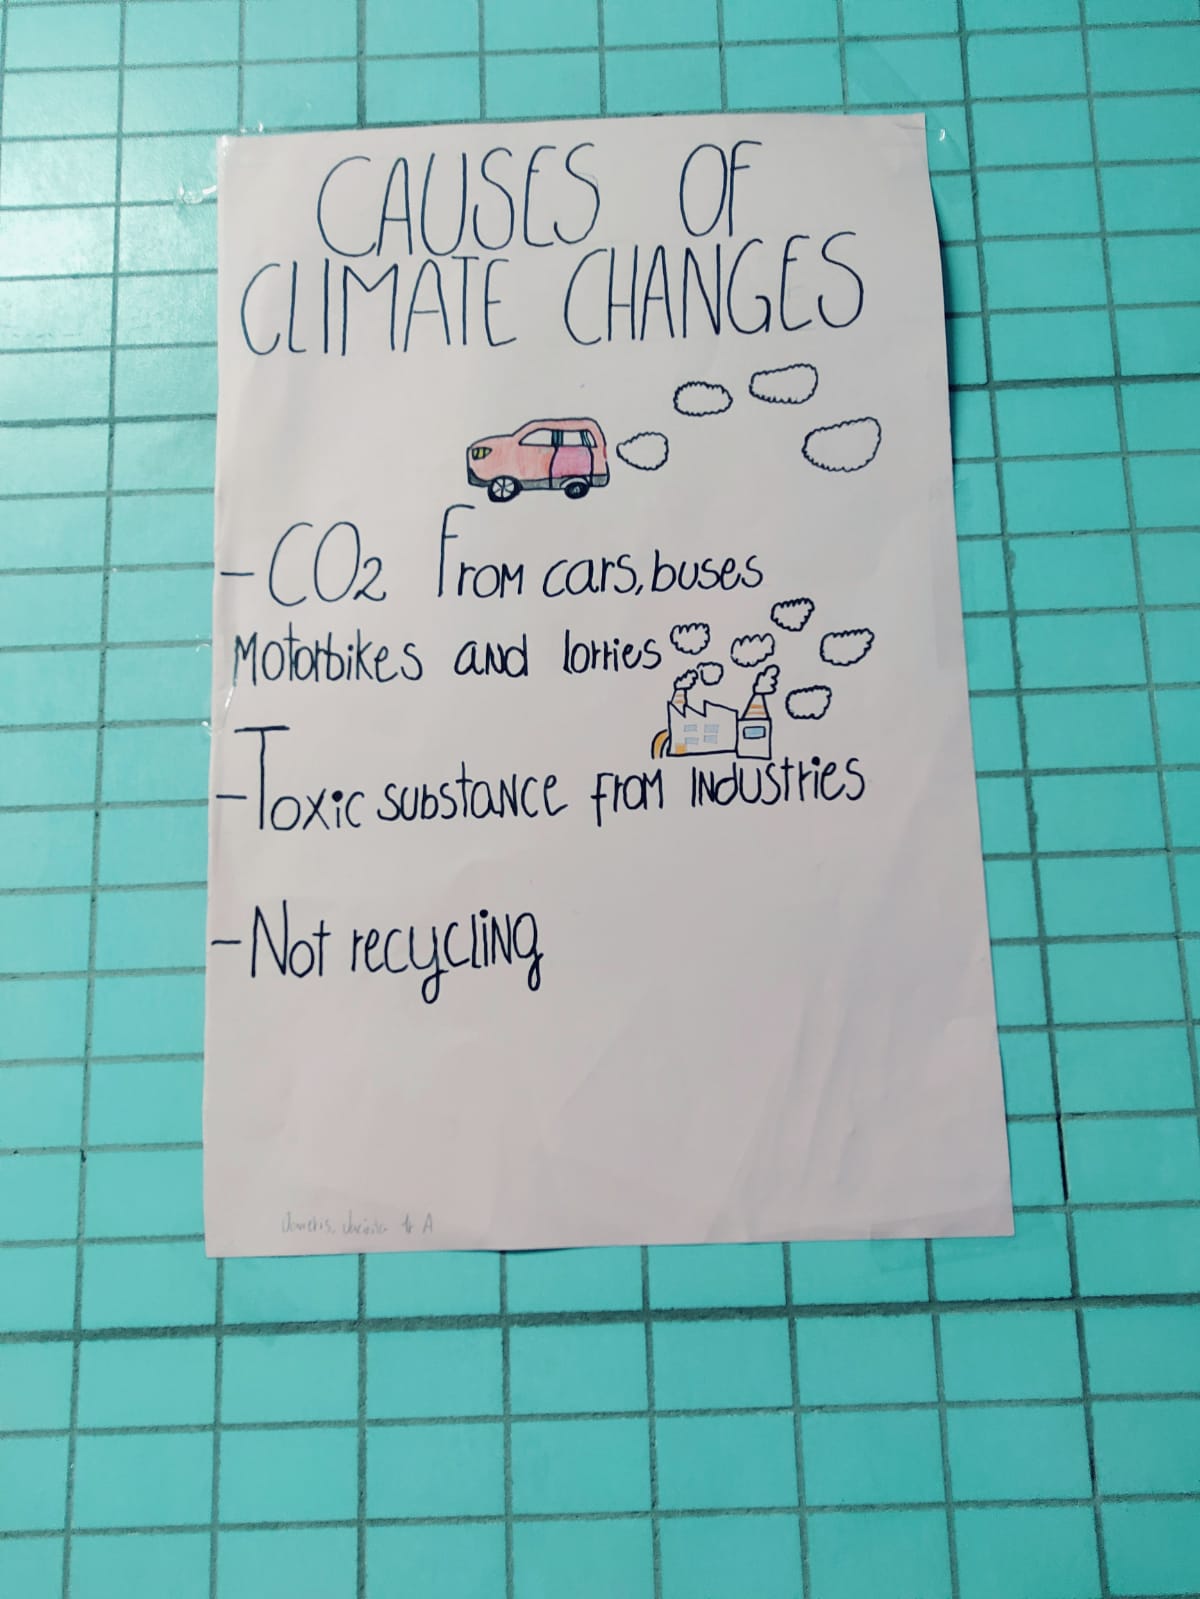 CAUSES OF
CLIMATE CHANGES
- CO2 From cars, buses
Motorbikes and lorries
- Toxic substance from industries
- Not recycling
A